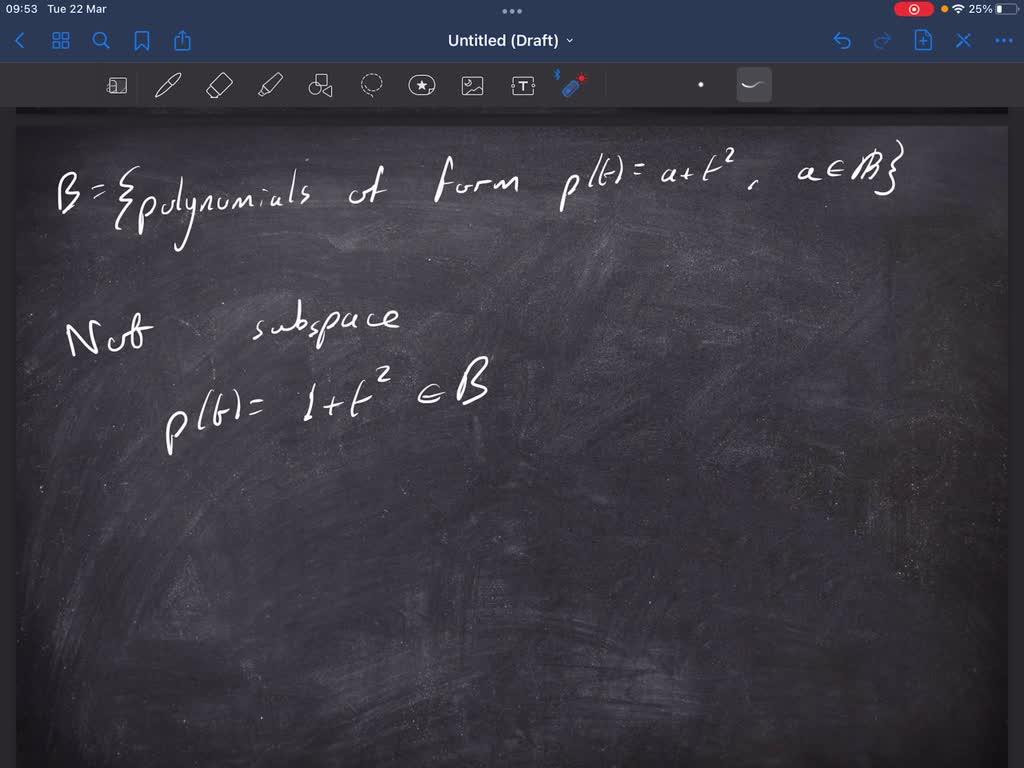 09:53 Tue 22 Mar 25%
Untitled (Draft)
T
B = {polynomials of form p(t) = a + t², a ∈ ℝ}
Not subspace
p(t) = 1 + t² ∈ B